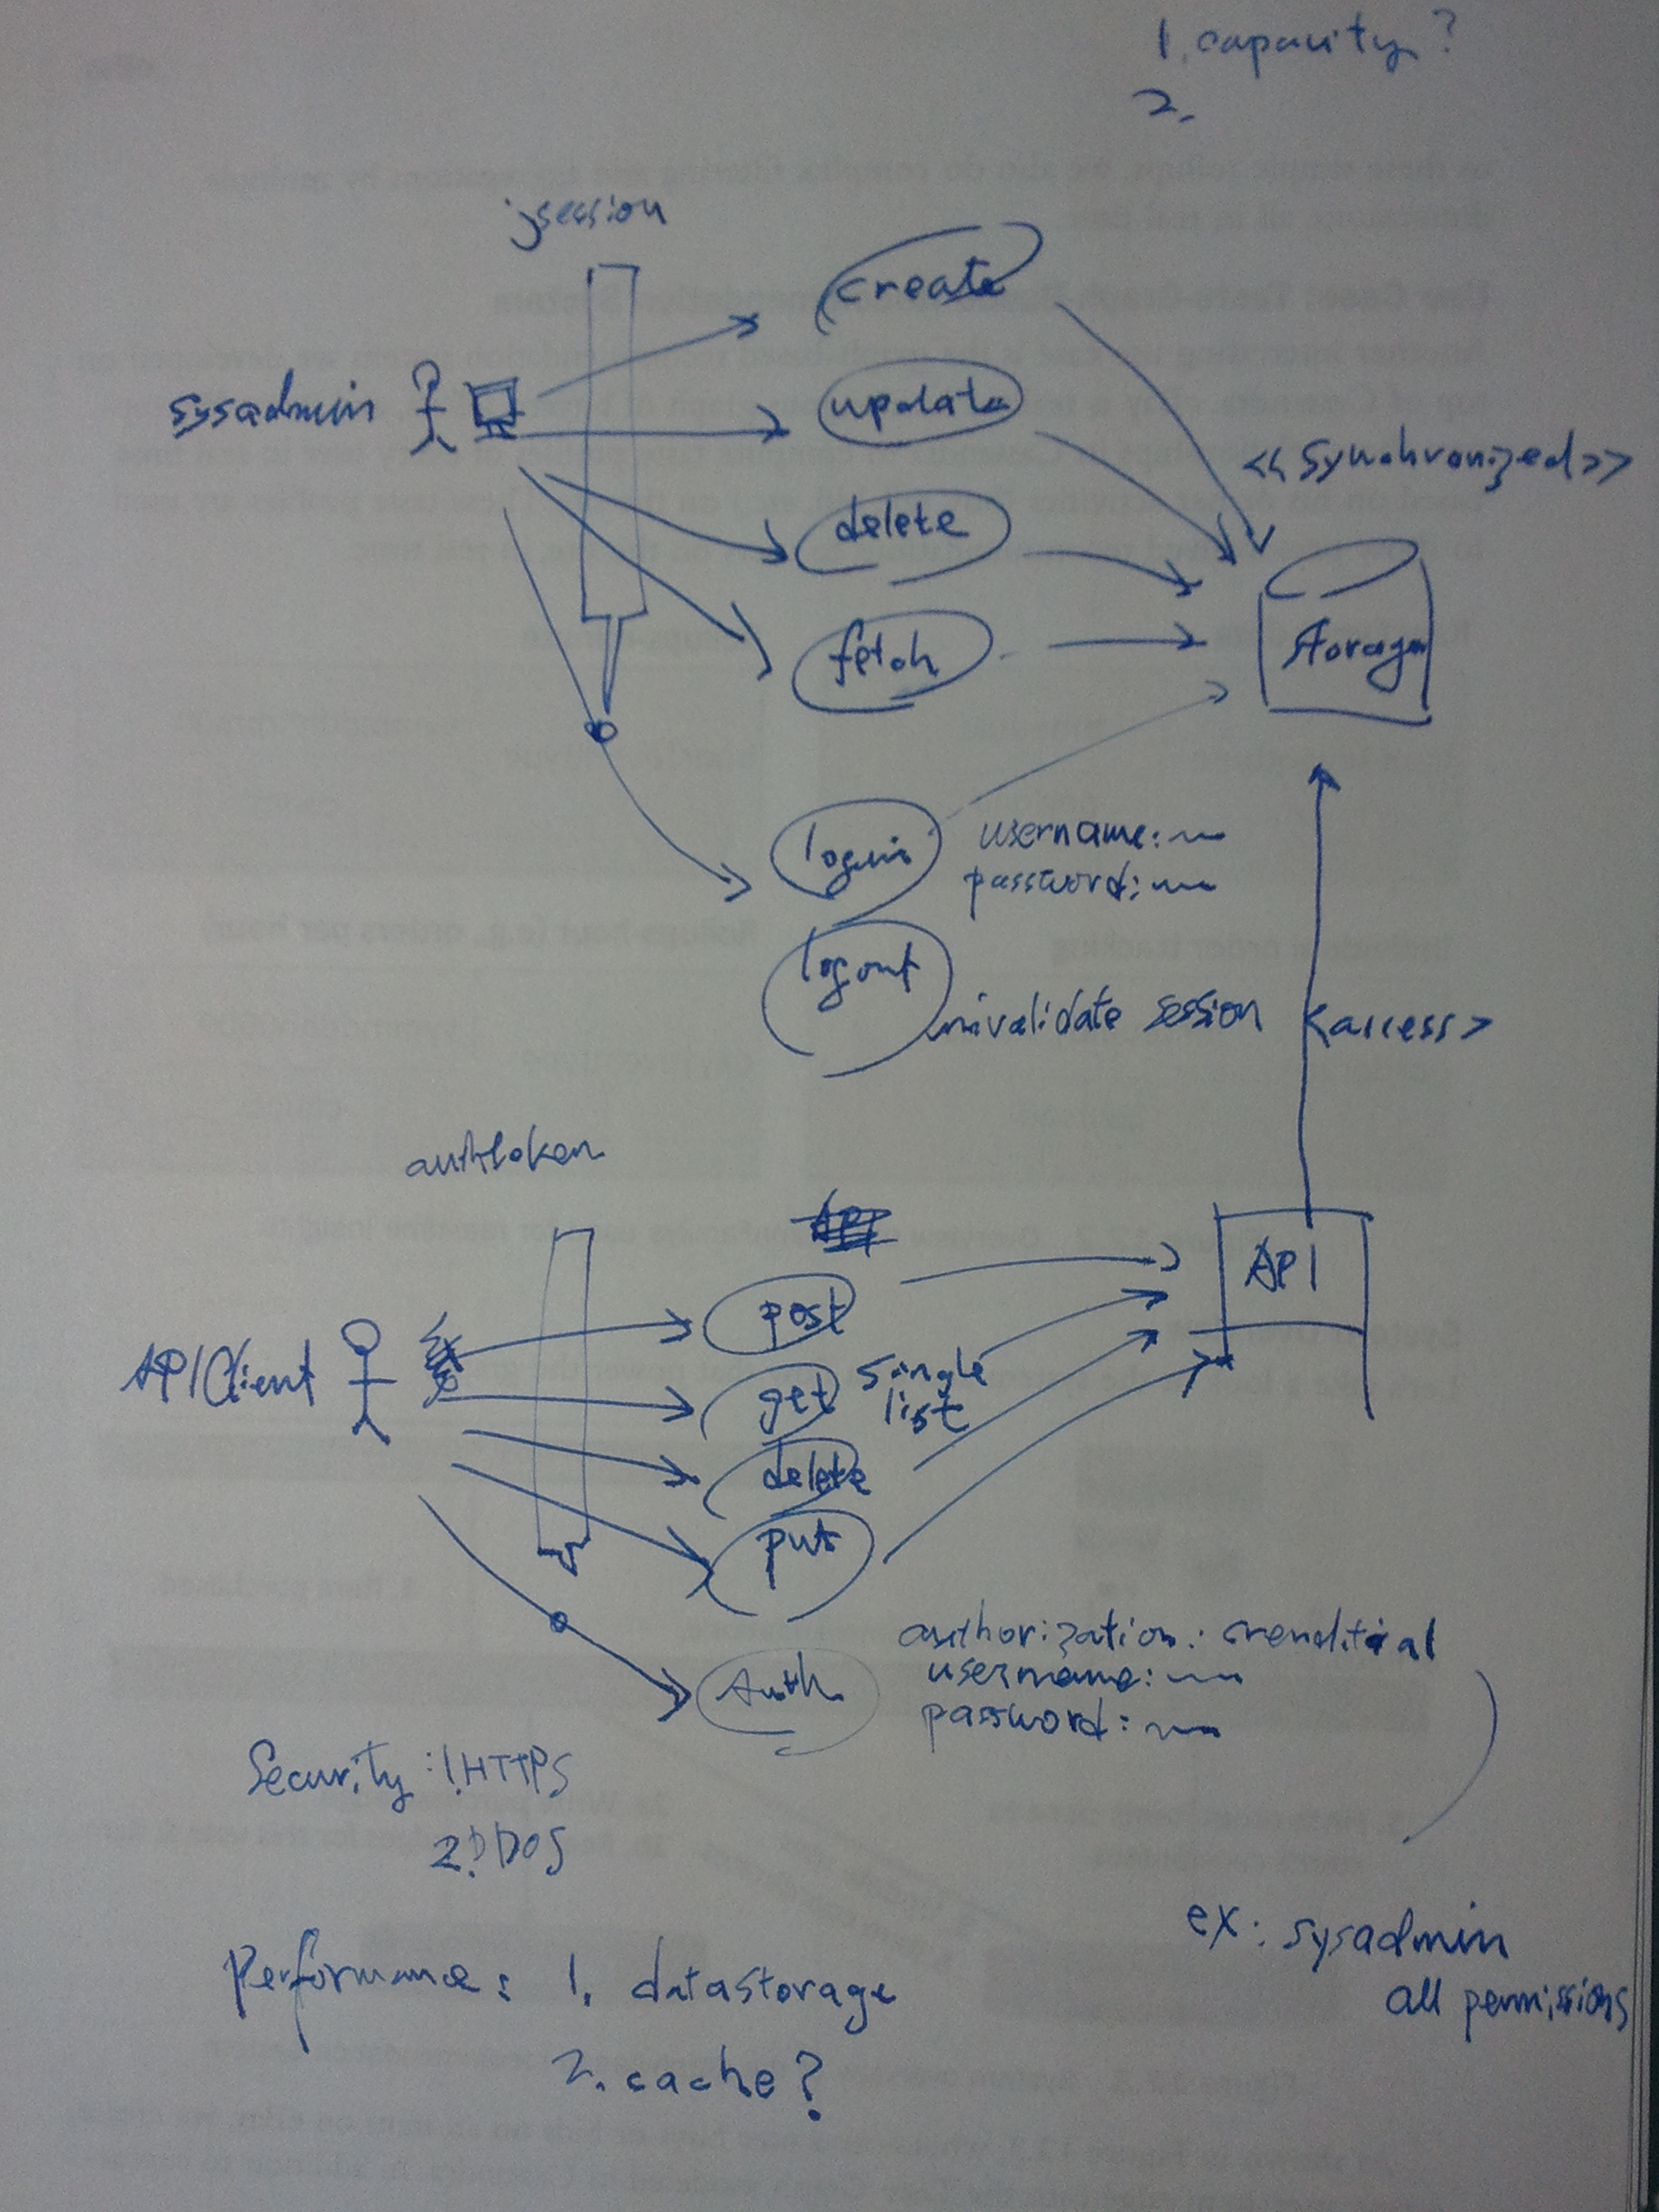 1. capacity?
2.
jsession
create
sysadmin
update
<<synchronized>>
delete
fetch
storage
login
username:
password:
logout
invalidate session
<access>
authtoken
API
API
post
API Client
get
single
list
delete
put
authorization: crenditial
username:
password:
Auth
Security: 1. HTTPS
2. DDOS
ex: sysadmin
all permissions
Performance: 1. datastorage
2. cache?